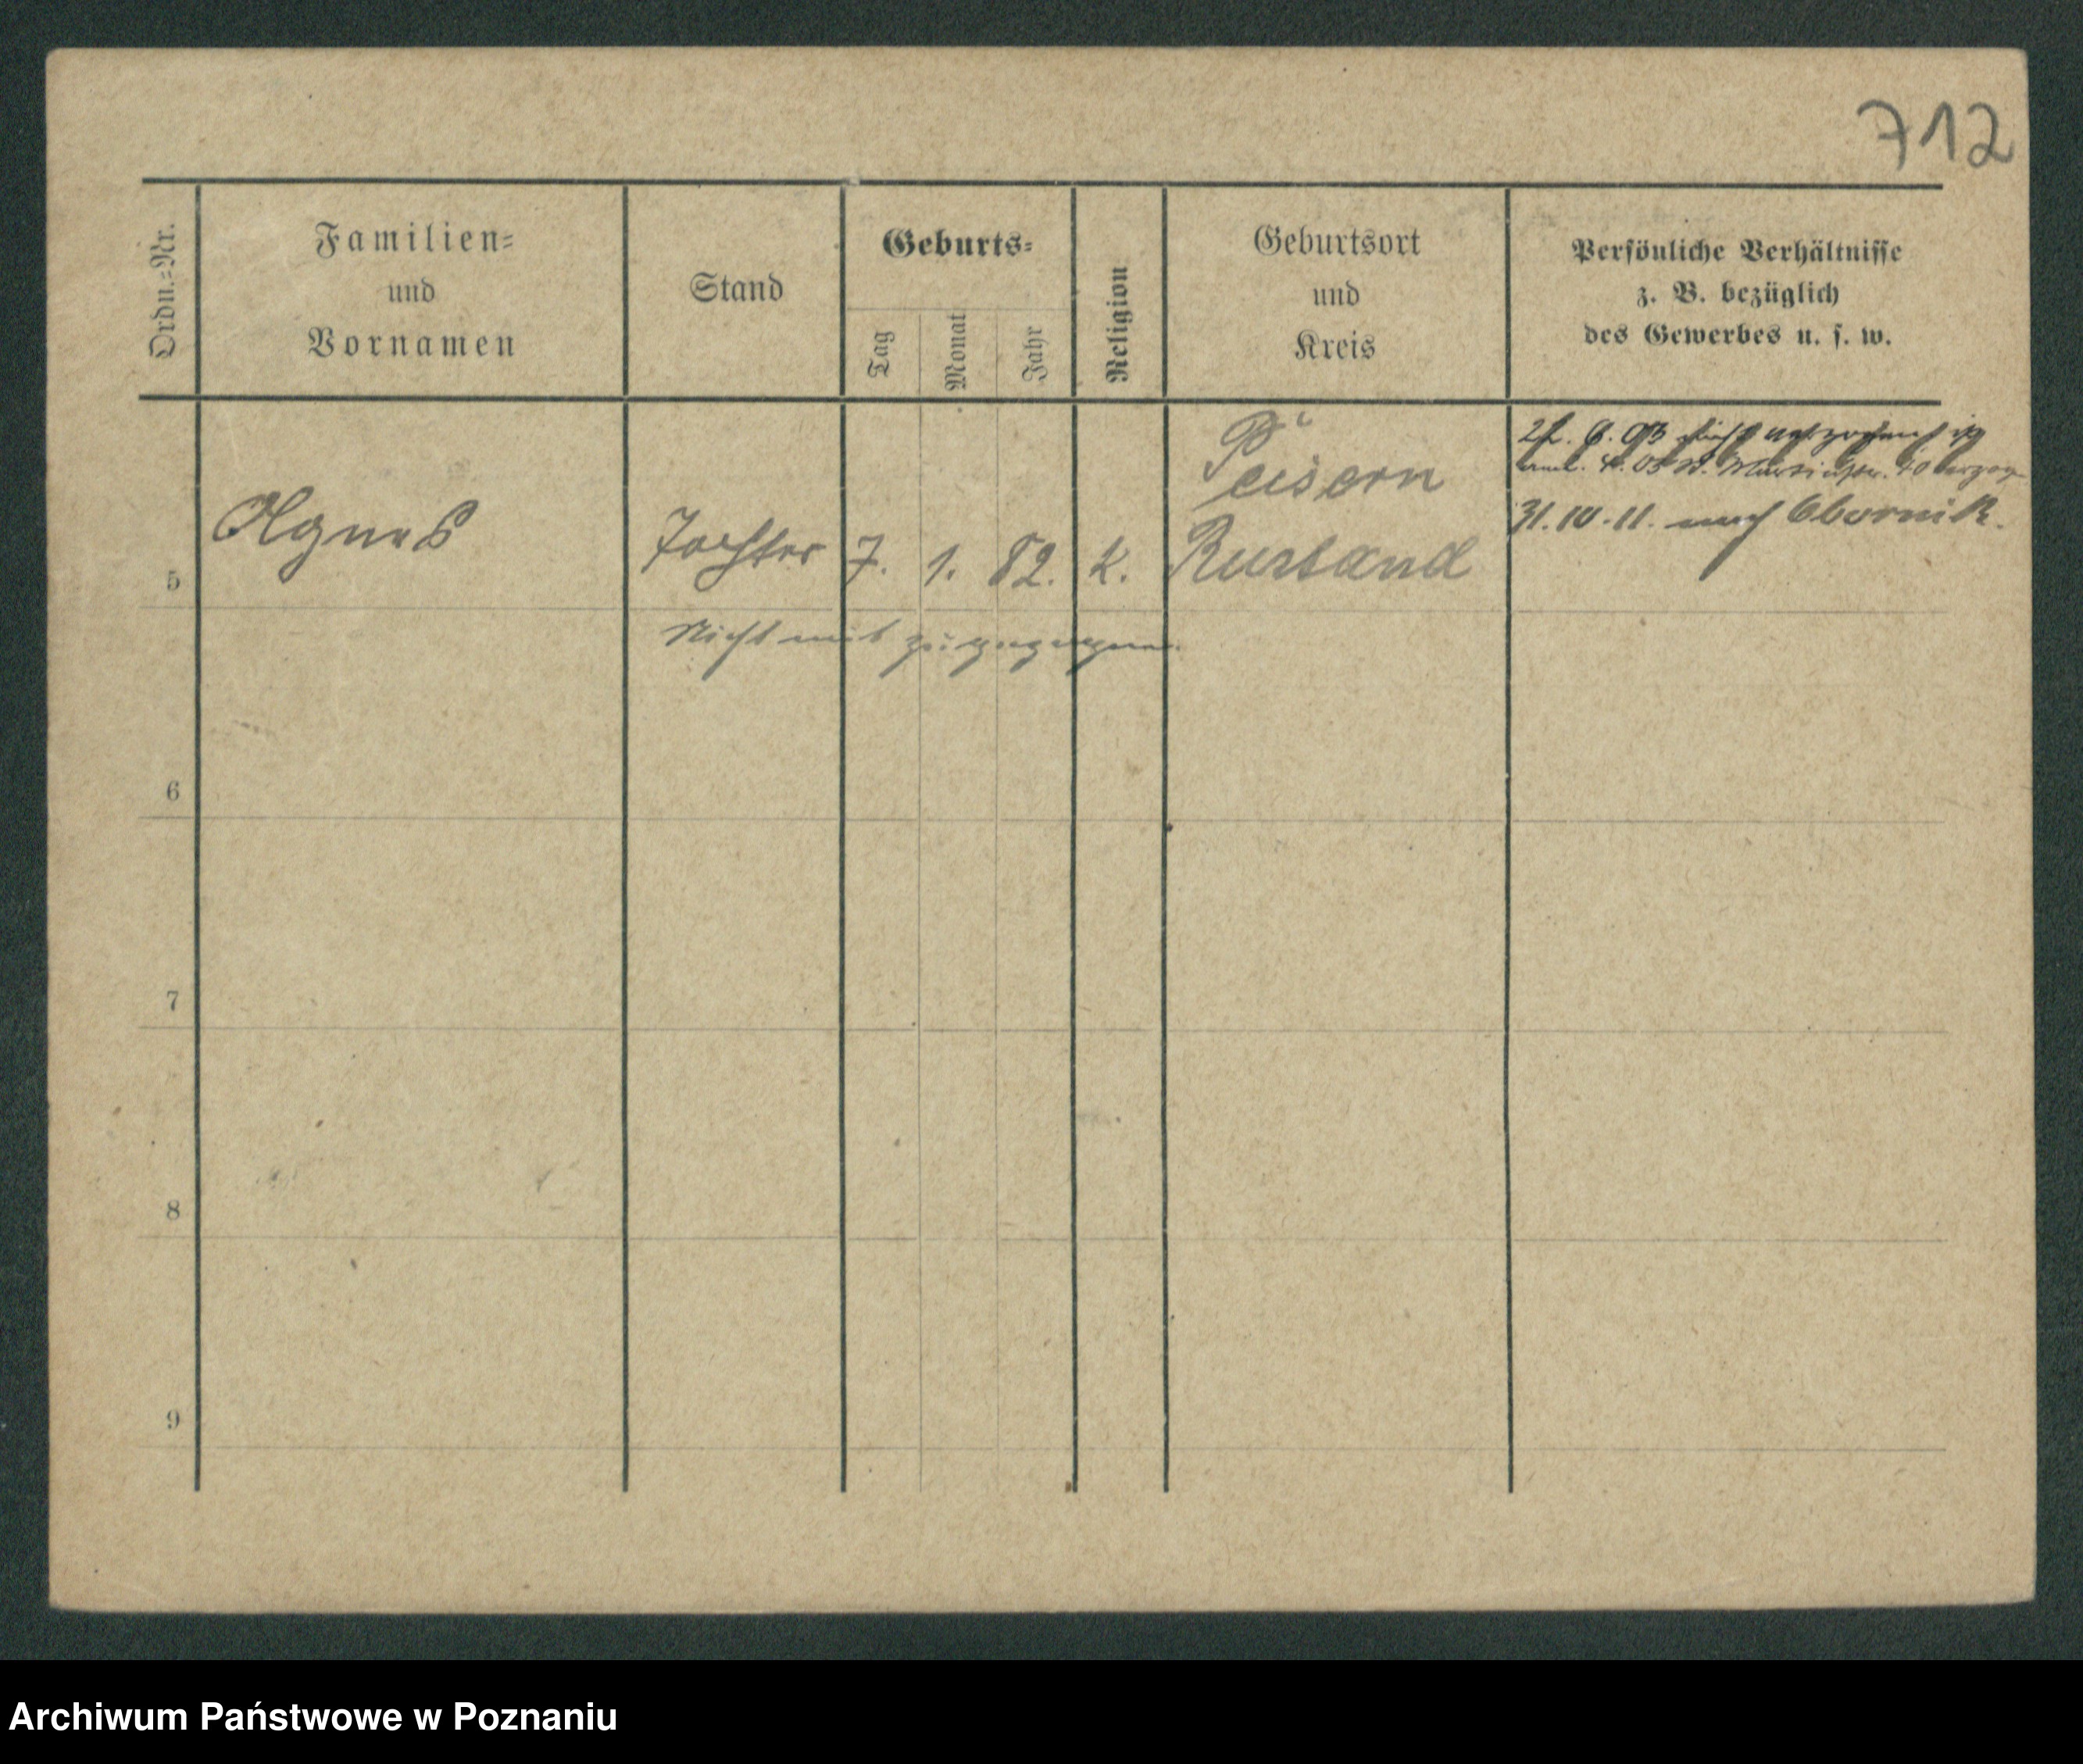 712
Ordn.=Nr.
Familien=
und
Vornamen
Stand
Geburts=
Tag
Monat
Jahr
Religion
Geburtsort
und
Kreis
Persönliche Verhältnisse
z. B. bezüglich
des Gewerbes u. s. w.
5
Agnes
Tochter
7.
1.
82.
k.
Peisern
Russland
03
31.10.11. nach Obornik.
Nicht mit zugezogen.
6
7
8
9
Archiwum Państwowe w Poznaniu